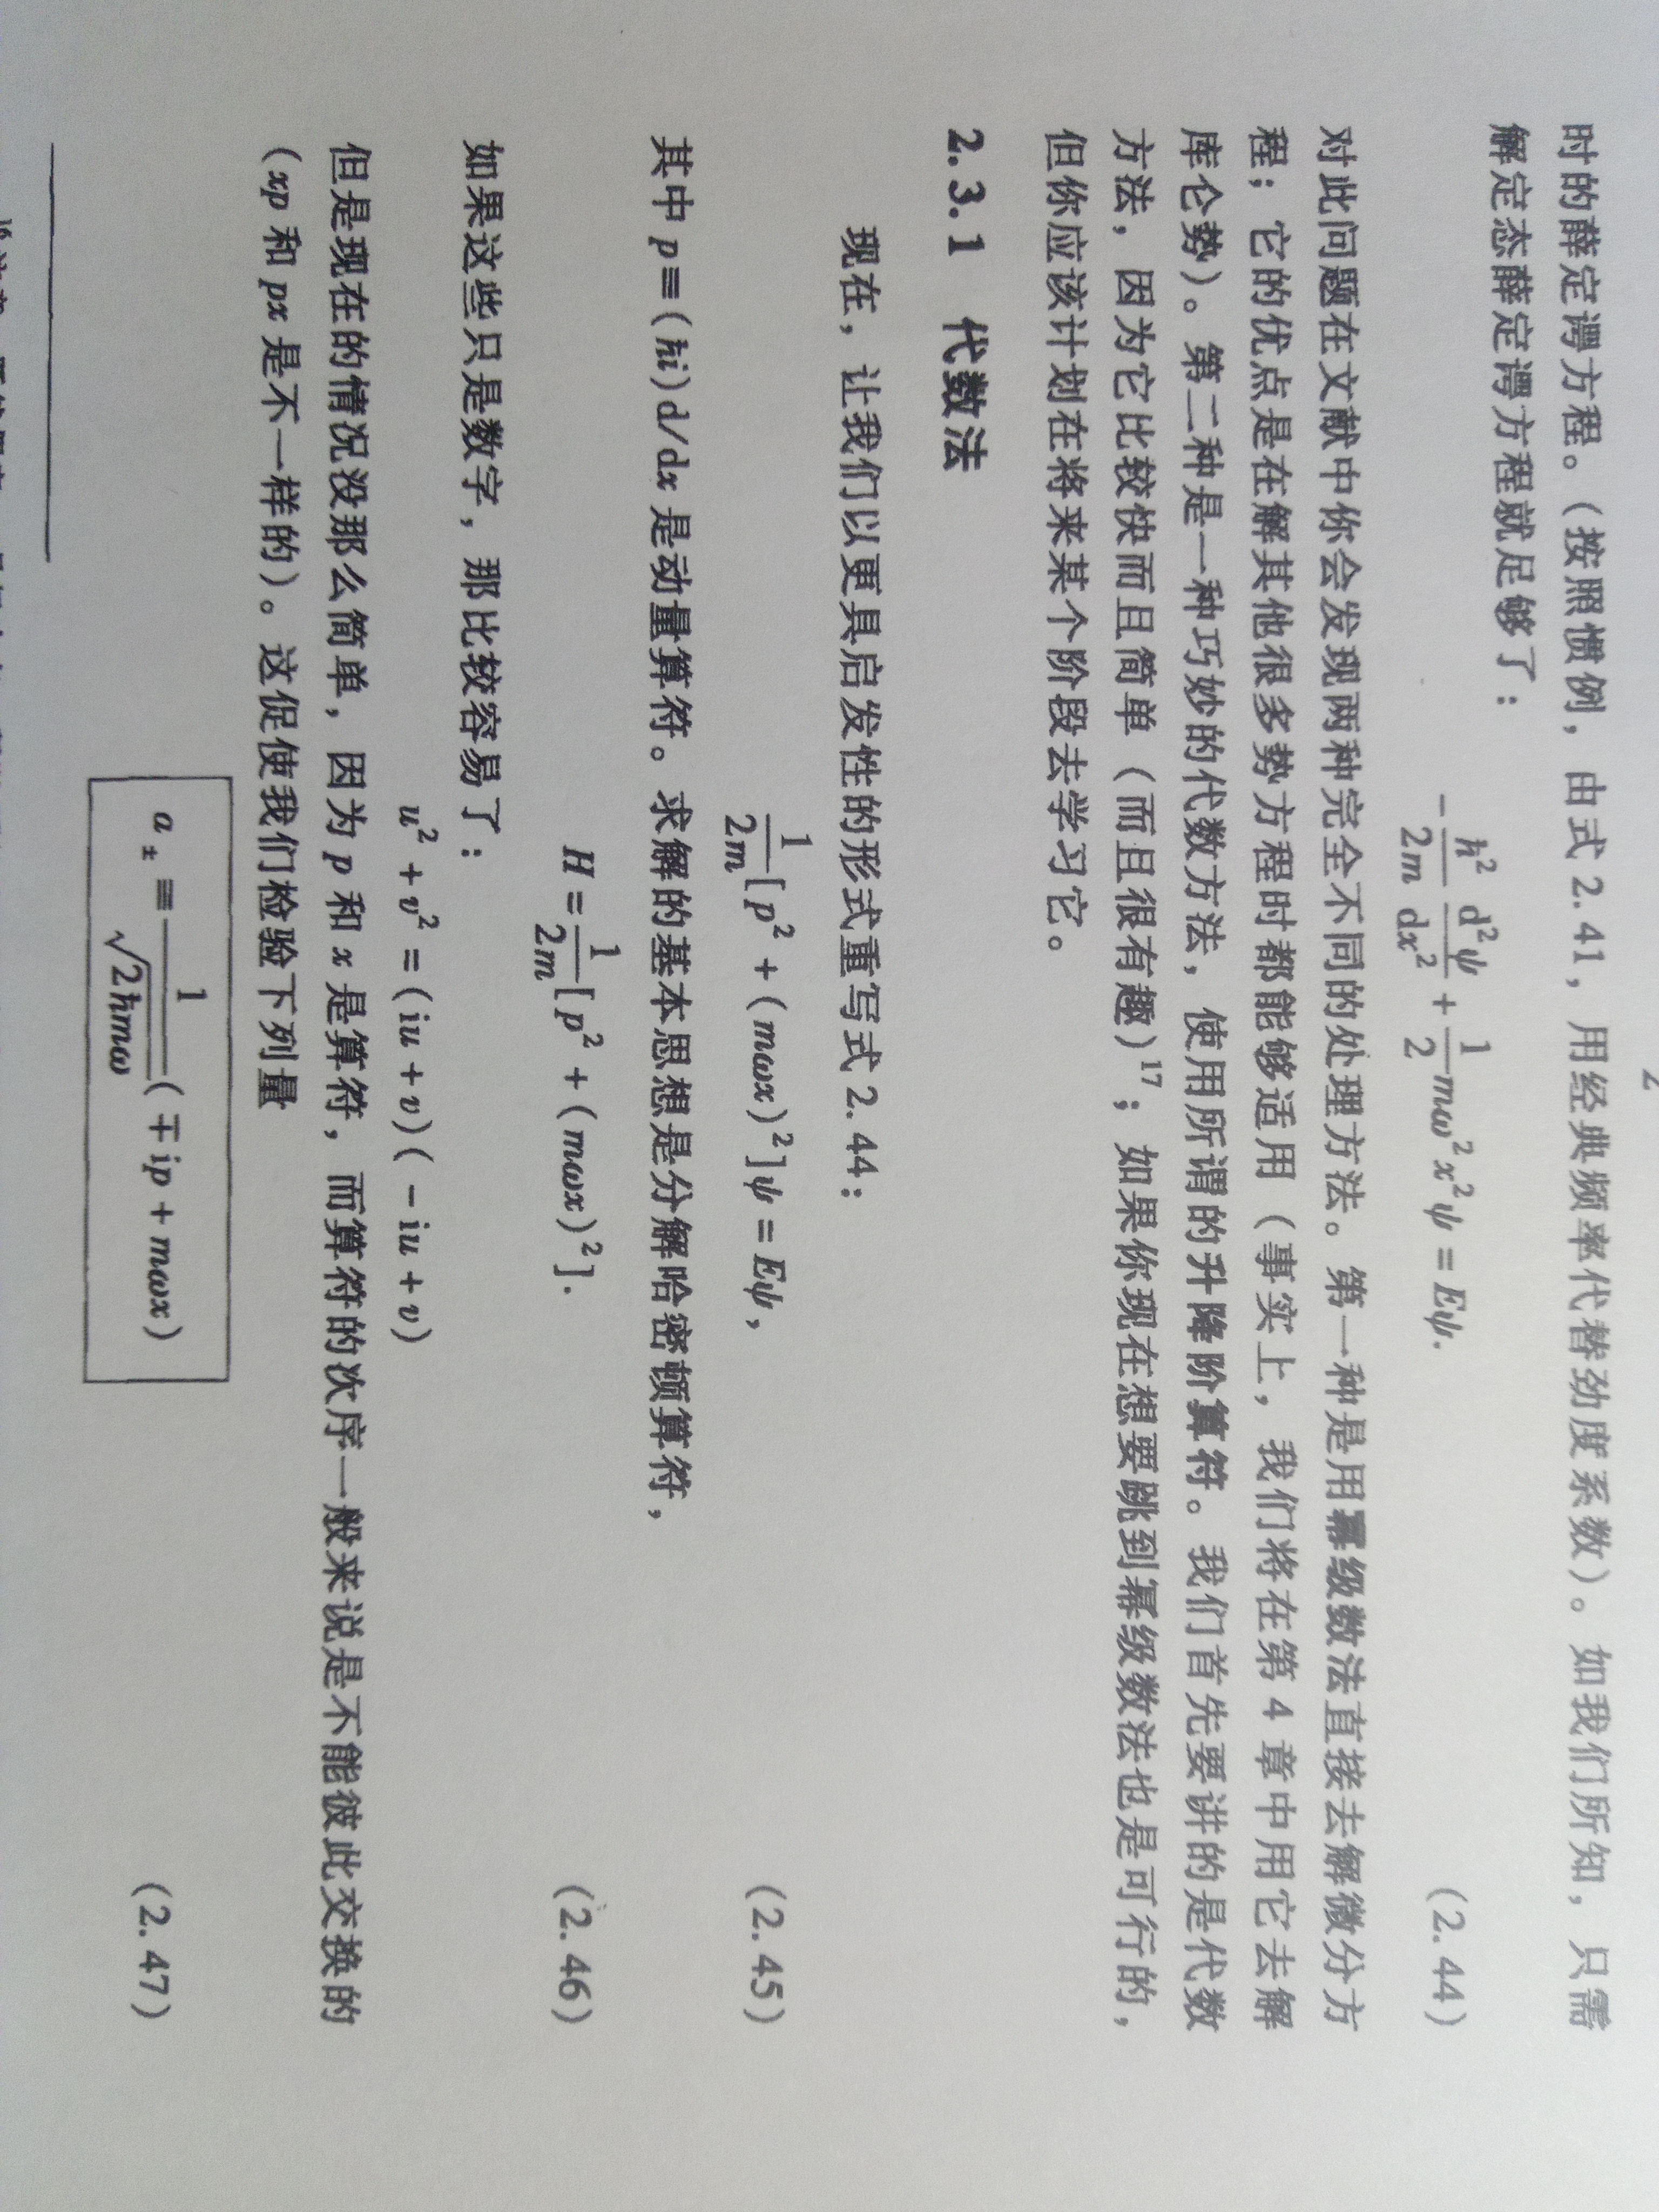 时的薛定谔方程。(按照惯例，由式 2.41，用经典频率代替劲度系数)。如我们所知，只需
解定态薛定谔方程就足够了：
-ħ²/2m d²ψ/dx² + 1/2 mω²x²ψ = Eψ. (2.44)
对此问题在文献中你会发现两种完全不同的处理方法。第一种是用幂级数法直接去解微分方
程；它的优点是在解其他很多势方程时都能够适用（事实上，我们将在第 4 章中用它去解
库仑势）。第二种是一种巧妙的代数方法，使用所谓的升降阶算符。我们首先要讲的是代数
方法，因为它比较快而且简单（而且很有趣）¹⁷；如果你现在想要跳到幂级数法也是可行的，
但你应该计划在将来某个阶段去学习它。
2.3.1 代数法
现在，让我们以更具启发性的形式重写式 2.44：
1/2m [p² + (mωx)²]ψ = Eψ, (2.45)
其中 p≡(ħi)d/dx 是动量算符。求解的基本思想是分解哈密顿算符，
H = 1/2m [p² + (mωx)²]. (2.46)
如果这些只是数字，那比较容易了：
u² + v² = (iu + v)(-iu + v)
但是现在的情况没那么简单，因为 p 和 x 是算符，而算符的次序一般来说是不能彼此交换的
（xp 和 px 是不一样的）。这促使我们检验下列量
a± ≡ 1/√2ħmω (∓ip + mωx) (2.47)